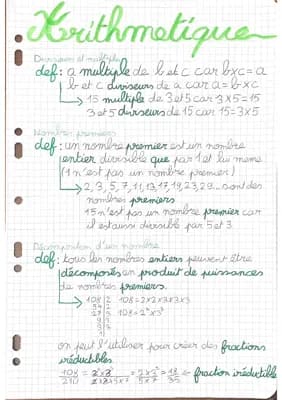 Arithmetique
Diviseurs et multiples
def: a multiple de b et c car b×c=a
b et c diviseurs de a car a=b×c
15 multiple de 3 et 5 car 3×5=15
3 et 5 diviseurs de 15 car 15=3×5
Nombres premiers
def: un nombre premier est un nombre
entier divisible que par 1 et lui meme
(1 n'est pas un nombre premier)
2, 3, 5, 7, 11, 13, 17, 19, 23, 29... sont des
nombres premiers
15 n'est pas un nombre premier car
il est aussi divisible par 5 et 3
Décomposition d'un nombre
def: tous les nombres entiers peuvent être
décomposés en produit de puissances
de nombres premiers.
108 2 108=2×2×3×3×3
54 2
27 3 108=2²×3³
9 3
3 3
1
on peut l'utiliser pour créer des fractions
irréductibles
108 = 2²×3³ = 2×3² = 18 ← fraction irréductible
210 2×3×5×7 5×7 35